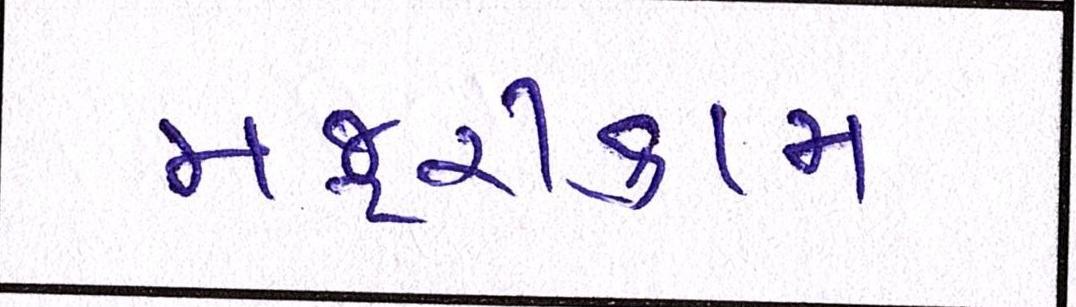 મજૂરીકામ